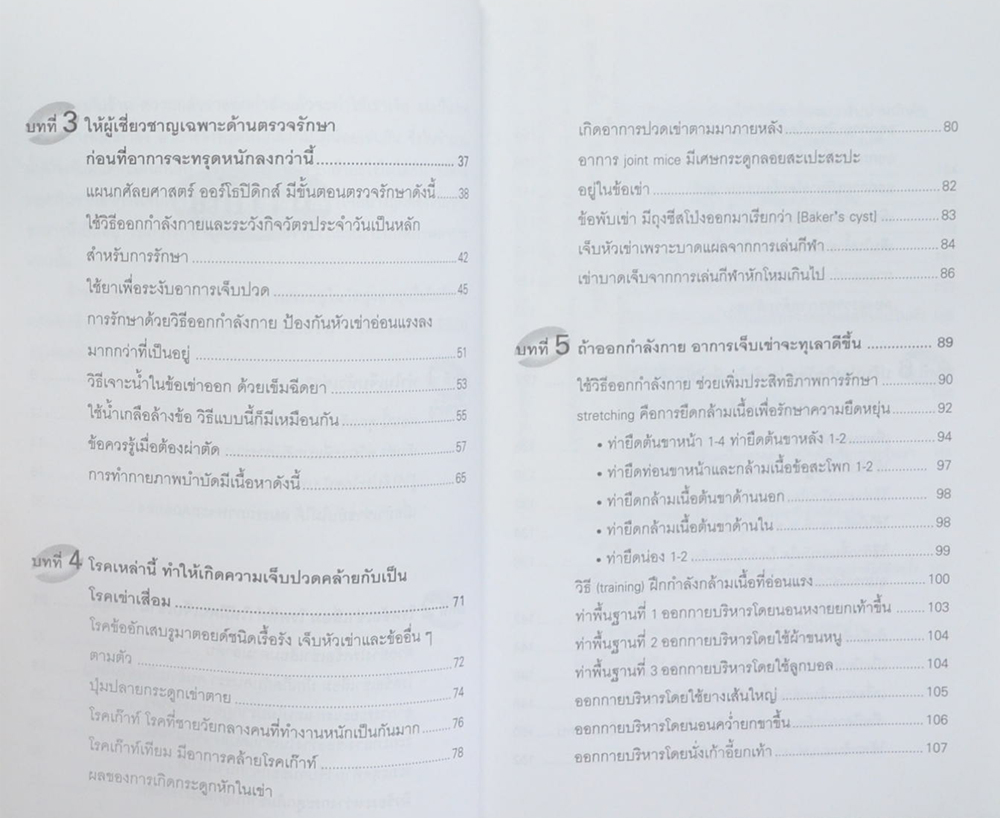 บทที่ 3 ให้ผู้เชี่ยวชาญเฉพาะด้านตรวจรักษา
ก่อนที่อาการจะทรุดหนักลงกว่านี้ 37
แผนกศัลยศาสตร์ ออร์โธปิดิกส์ มีขั้นตอนตรวจรักษาดังนี้ 38
ใช้วิธีออกกำลังกายและระวังกิจวัตรประจำวันเป็นหลัก
สำหรับการรักษา 42
ใช้ยาเพื่อระงับอาการเจ็บปวด 45
การรักษาด้วยวิธีออกกำลังกาย ป้องกันหัวเข่าอ่อนแรงลง
มากกว่าที่เป็นอยู่ 51
วิธีเจาะน้ำในข้อเข่าออก ด้วยเข็มฉีดยา 53
ใช้น้ำเกลือล้างข้อ วิธีแบบนี้ก็มีเหมือนกัน 55
ข้อควรรู้เมื่อต้องผ่าตัด 57
การทำกายภาพบำบัดมีเนื้อหาดังนี้ 65
บทที่ 4 โรคเหล่านี้ ทำให้เกิดความเจ็บปวดคล้ายกับเป็น
โรคเข่าเสื่อม 71
โรคข้ออักเสบรูมาตอยด์ชนิดเรื้อรัง เจ็บหัวเข่าและข้ออื่น ๆ
ตามตัว 72
ปุ่มปลายกระดูกเข่าตาย 74
โรคเก๊าท์ โรคที่ชายวัยกลางคนที่ทำงานหนักเป็นกันมาก 76
โรคเก๊าท์เทียม มีอาการคล้ายโรคเก๊าท์ 78
ผลของการเกิดกระดูกหักในเข่า
เกิดอาการปวดเข่าตามมาภายหลัง 80
อาการ joint mice มีเศษกระดูกลอยสะเปะสะปะ
อยู่ในข้อเข่า 82
ข้อพับเข่า มีถุงซีสโป่งออกมาเรียกว่า (Baker's cyst) 83
เจ็บหัวเข่าเพราะบาดแผลจากการเล่นกีฬา 84
เข่าบาดเจ็บจากการเล่นกีฬาหักโหมเกินไป 86
บทที่ 5 ถ้าออกกำลังกาย อาการเจ็บเข่าจะทุเลาดีขึ้น 89
ใช้วิธีออกกำลังกาย ช่วยเพิ่มประสิทธิภาพการรักษา 90
stretching คือการยืดกล้ามเนื้อเพื่อรักษาความยืดหยุ่น 92
• ท่ายืดต้นขาหน้า 1-4 ท่ายืดต้นขาหลัง 1-2 94
• ท่ายืดท่อนขาหน้าและกล้ามเนื้อข้อสะโพก 1-2 97
• ท่ายืดกล้ามเนื้อต้นขาด้านนอก 98
• ท่ายืดกล้ามเนื้อต้นขาด้านใน 98
• ท่ายืดน่อง 1-2 99
วิธี (training) ฝึกกำลังกล้ามเนื้อที่อ่อนแรง 100
ท่าพื้นฐานที่ 1 ออกกายบริหารโดยนอนหงายยกเท้าขึ้น 103
ท่าพื้นฐานที่ 2 ออกกายบริหารโดยใช้ผ้าขนหนู 104
ท่าพื้นฐานที่ 3 ออกกายบริหารโดยใช้ลูกบอล 104
ออกกายบริหารโดยใช้ยางเส้นใหญ่ 105
ออกกายบริหารโดยนอนคว่ำยกขาขึ้น 106
ออกกายบริหารโดยนั่งเก้าอี้ยกเท้า 107